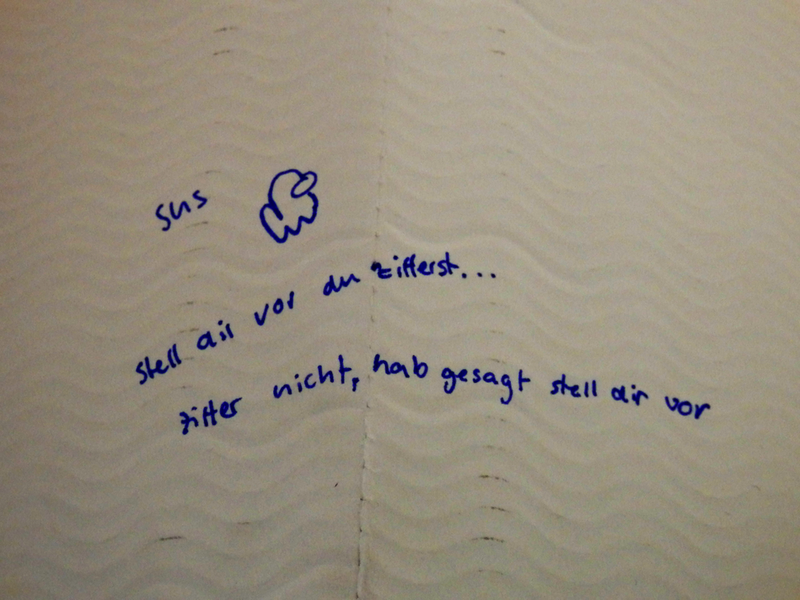 sus
stell dir vor du zitterst...
zitter nicht, hab gesagt stell dir vor